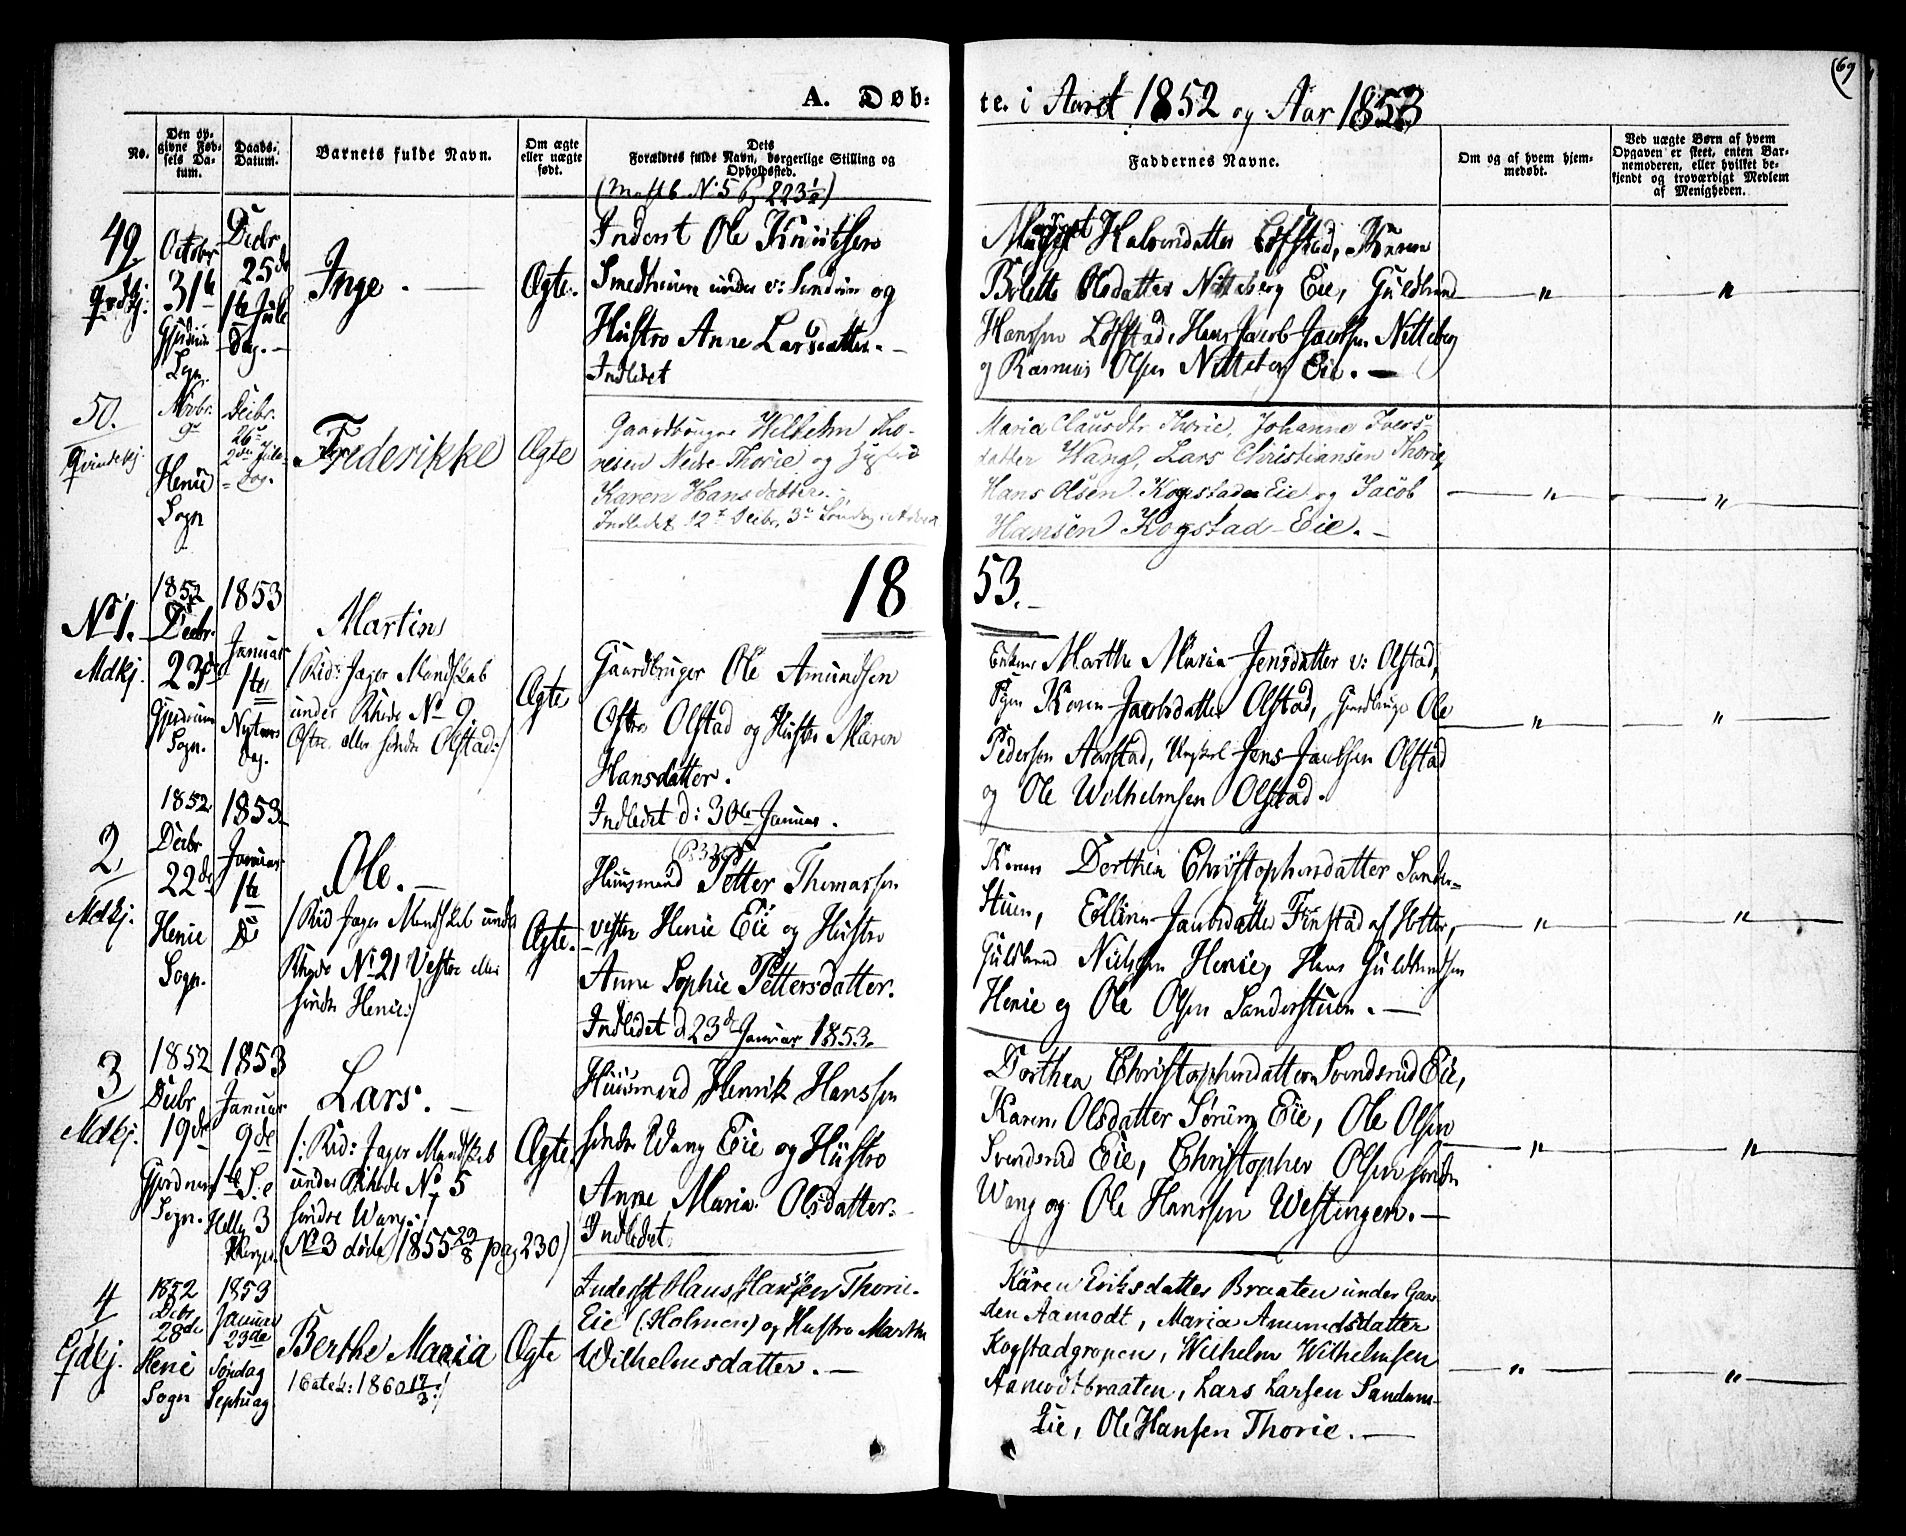 69
A. Døb: te. i Aaret 1852 og Aar 1853
No.
Den opgivne Fødsels Datum.
Daabs-Datum.
Barnets fulde Navn.
Om ægte eller uægte født.
Dets Forældres fulde Navn, borgerlige Stilling og Opholdssted.
Faddernes Navne.
Om og af hvem hjemmedøbt.
Ved uægte Børn af hvem Opgaven er skeet, enten Barnemoderen, eller hvilket bekjendt og troværdigt Medlem af Menigheden.
49
Qvdkj.
Octobr
31te
Gjerdrum
Sogn.
Decbr
25de
1ste Jule
dag.
Inge.
Ægte.
Inderst Ole Knudtsen
og
Hustro Anne Larsdatter.
Indledet
Halvorsdatter Løfstad, Karen
Bolette Olsdatter Nitteberg Eie, Guldbrand
Hanssen Løfstad, Hans Jacob Jacobsen Nitteberg
og Rasmus Olsen Nitteberg Eie.
" "
50.
Qvindekj.
Novbr.
9de
Henie
Sogn
Decbr.
26de
2den Jule-
dag.
Frederikke
Ægte
Gaardbruger Wilhelm Tho-
resen Nedre Thorie og Hustro
Karen Hansdatter.
Indledet 12te Decbr. 3die Søndag i Advent
Maria Clausdtr Thorie, Johanne Ivers-
datter Wang, Lars Christiansen Thorie,
Hans Olsen Kogstad Eie og Jacob
Hansen Kogstad Eie.
" "
1853.
No 1.
Mdkj.
1852
Decbr.
23de
Gjerdrum
Sogn.
1853
Januar
1ste
Nytaars
dag.
Martin
/Rid: Jæger Mandskab
under Rhode No 9
Østre eller søndre Olstad:/
Ægte
Gaardbruger Ole Amundsen
Østre Olstad og Hustro Maren
Hansdatter.
Indledet d: 30te Januar.
Enken Marthe Maria Jensdatter v: Olstad,
Pigen Karen Jacobsdatter Olstad, Gaardbruger Ole
Pedersen Aarstad, Ungkarl Jens Jacobsen Olstad
og Ole Wilhelmsen Olstad.
" "
2
Mdkj.
1852
Decbr
22de
Henie
Sogn.
1853
Januar
1ste
Ole.
/Rid Jæger Mandskab under
Rhode No 21 Vestre eller
søndre Henie:/
Ægte.
Huusmand Petter Thomassen
vestre Henie Eie og Hustro
Anne Sophie Pettersdatter.
Indledet d. 23de Januar 1853.
Karen Dorthea Christophersdatter Sander-
stuen, Elline Jacobsdatter Finstad af Hotter,
Guldbrand Nielsen Henie, Hans Guldbrandsen
Henie og Ole Olsen Sanderstuen.
" "
3
Mdkj.
1852
Decbr
19de
Gjerdrum
Sogn.
1853
Januar
9de
1ste S. e
Hellig 3
Konger.
Lars.
/: Rid: Jæger Mandskab
under Rhode No 5
søndre Wang:/
(No 3 døde 1855 29/8 pag 230)
Ægte
Huusmand Henrik Hanssen
søndre Wang Eie og Hustro
Anne Maria Olsdatter.
Indledet
Dorthea Christophersdatter Svendsrud Eie,
Karen Olsdatter Sørum Eie, Ole Olsen
Svendsrud Eie, Christopher Olsen søndre
Wang og Ole Hanssen Westengen.
" "
4
Qdkj.
1852
Decbr
28de
Henie
Sogn
1853
Januar
23de
Søndag
Septuag
Berthe Maria
/ Extrah: 1860 17/3:/
Ægte
Inderst Hans Hansen Thorie-
Eie (Holmen) og Hustro Marthe
Wilhelmsdatter.
Karen Eriksdatter Braaten under Gaar-
den Aamodt, Maria Amundsdatter
Kogstadgropen, Wilhelm Wilhelmsen
Aamodtbraaten, Lars Larsen Sandum-
Eie, Ole Hansen Thorie.
" "